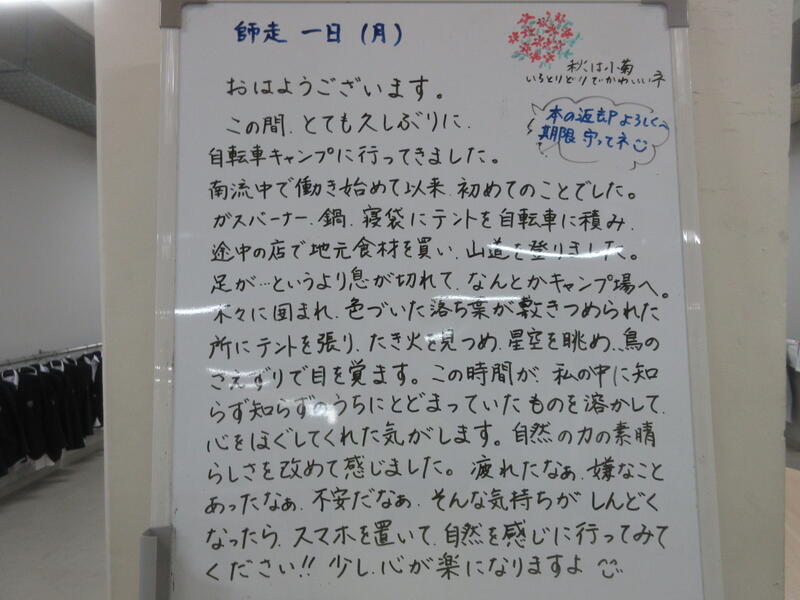 師走 一日 (月)
秋は小菊
いろとりどりでかわいいネ
本の返却よろしく
期限 守ってネ
おはようございます。
この間、とても久しぶりに、
自転車キャンプに行ってきました。
南流中で働き始めて以来、初めてのことでした。
ガスバーナー、鍋、寝袋にテントを自転車に積み、
途中の店で地元食材を買い、山道を登りました。
足が…というより息が切れて、なんとかキャンプ場へ。
木々に囲まれ、色づいた落ち葉が敷きつめられた
所にテントを張り、たき火を見つめ、星空を眺め、鳥の
さえずりで目を覚ます。この時間が、私の中に知
らず知らずのうちにとどまっていたものを溶かして、
心をほぐしてくれた気がします。自然の力の素晴
らしさを改めて感じました。疲れたなぁ、嫌なこと
あったなぁ、不安だなぁ、そんな気持ちが しんどく
なったら、スマホを置いて、自然を感じに行ってみて
ください!! 少し、心が楽になりますよ